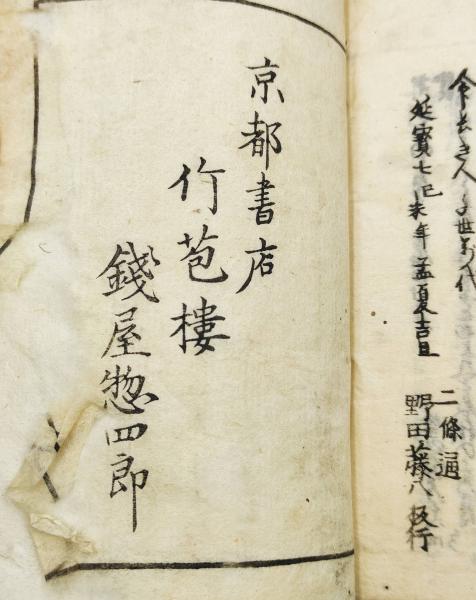 延寳七己未年孟夏吉日
二條通
野田藤八板行
京都書店
竹苞樓
錢屋惣四郎